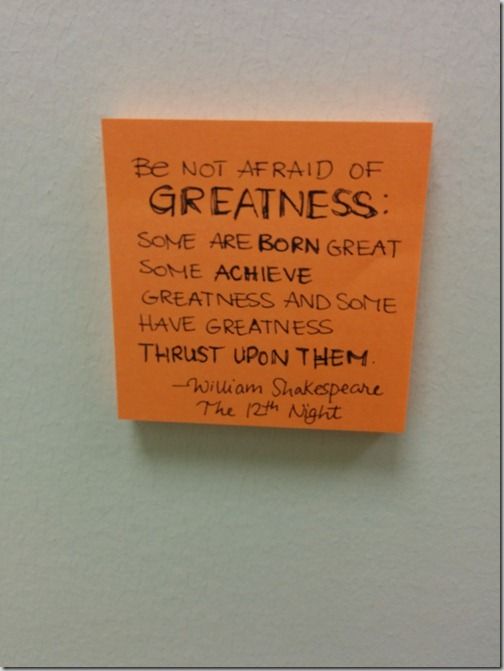 BE NOT AFRAID OF
GREATNESS:
SOME ARE BORN GREAT
SOME ACHIEVE
GREATNESS AND SOME
HAVE GREATNESS
THRUST UPON THEM.
—William Shakespeare
The 12th Night